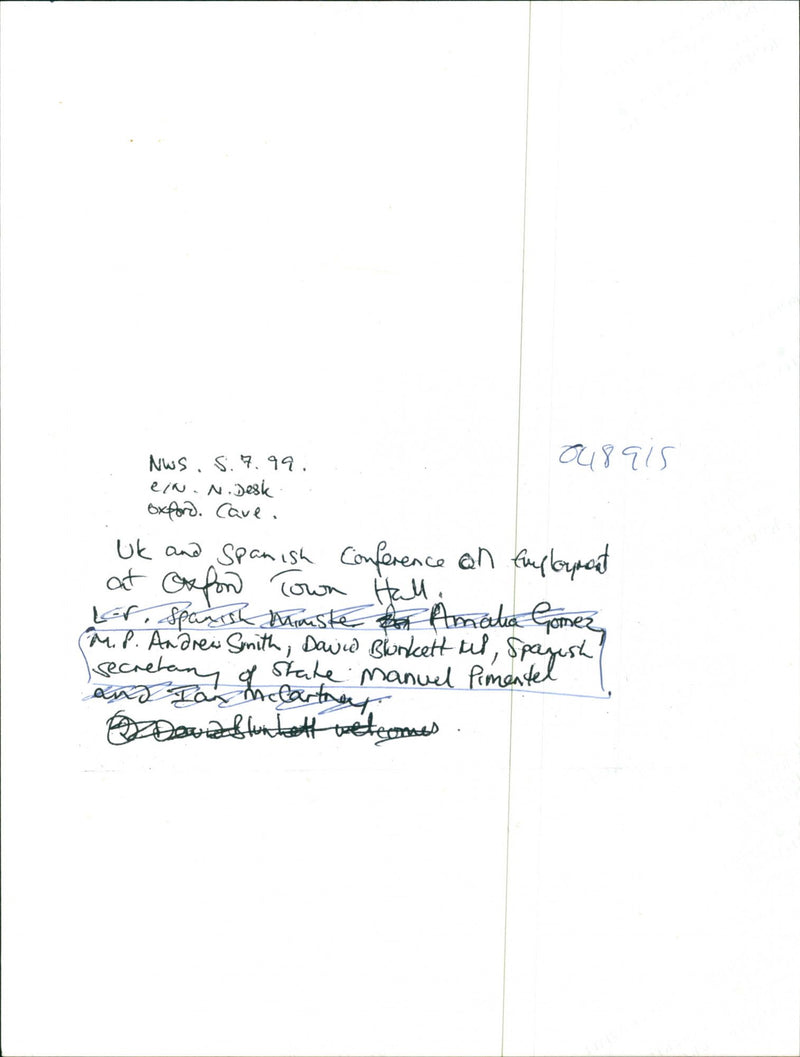 NWS. 5.7.99.
048915
C/N. N.Desk
Oxford. Cave.
UK and Spanish Conference on Employment
at Oxford Town Hall.
L-r. Spanish Minister for Amalia Gomez
M.P. Andrew Smith, David Blunkett MP, Spanish
secretary of State Manuel Pimentel
and Ian McCartney.
② David Blunkett welcomes